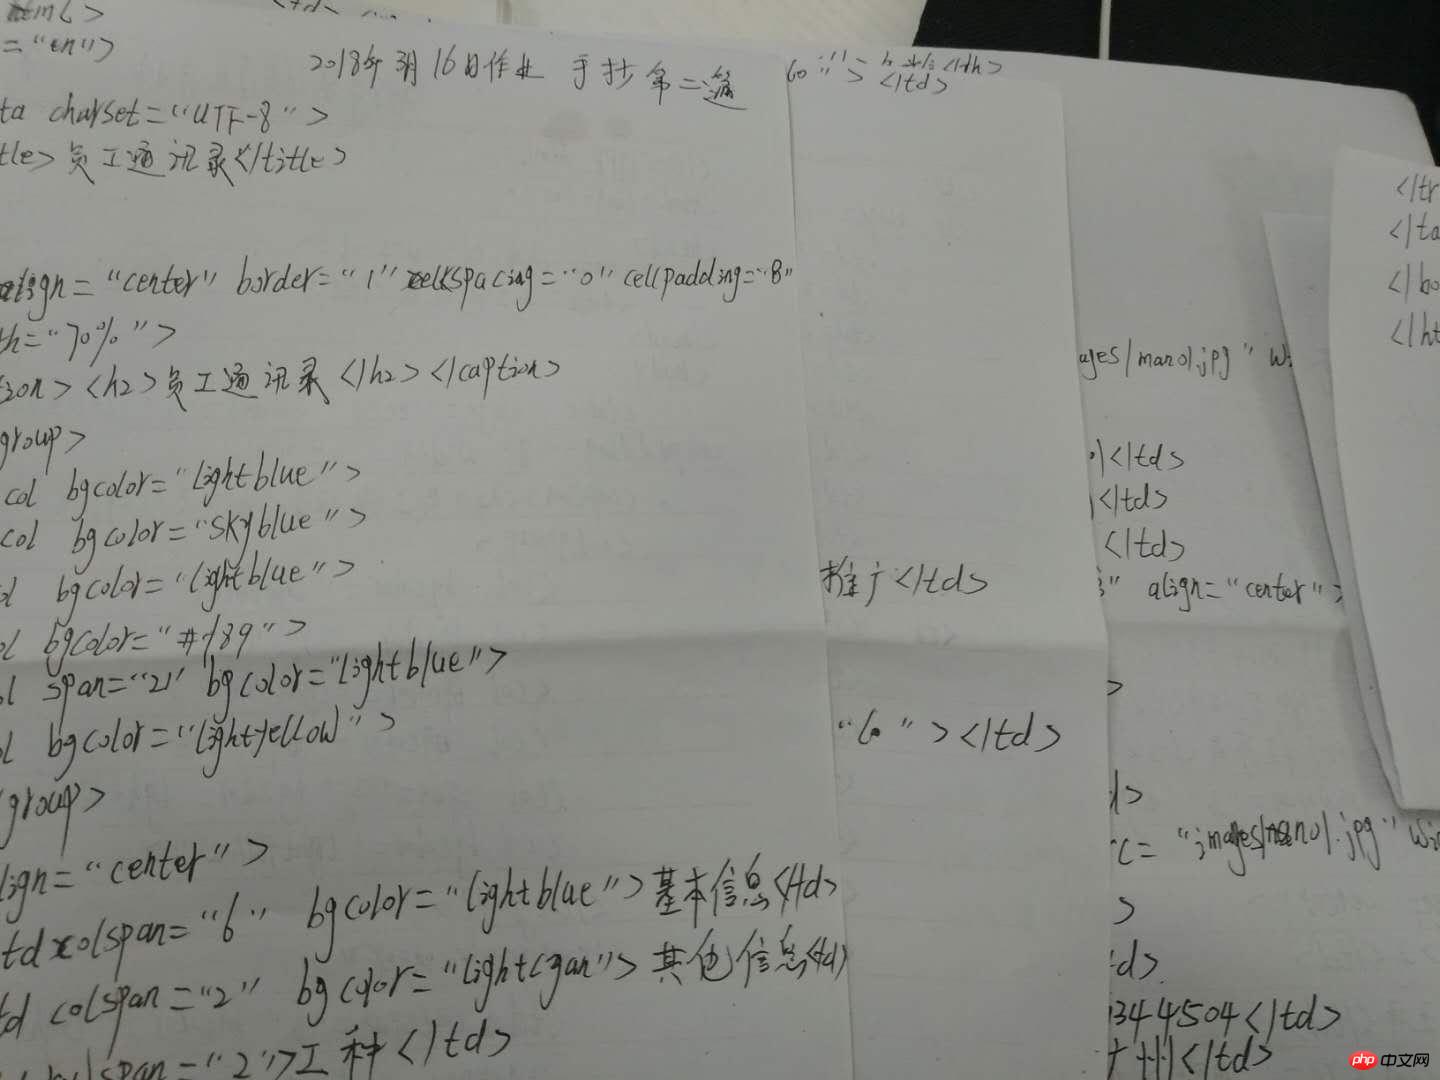 ="en">
2018年3月16日作业 手抄第二遍
ta charset="UTF-8">
tle>员工通讯录</title>
align="center" border="1" cellspacing="0" cellpadding="8"
th="70%">
tion><h2>员工通讯录</h2></caption>
group>
col bgcolor="lightblue">
col bgcolor="skyblue">
ol bgcolor="lightblue">
ol bgcolor="#f89">
ol span="2" bgcolor="lightblue">
ol bgcolor="lightyellow">
group>
lign="center">
td colspan="6" bgcolor="lightblue">基本信息</td>
td colspan="2" bgcolor="lightcyan">其他信息</td>
span="2">工种</td>
</th>
"></td>
推广</td>
"></td>
ages/man01.jpg" wi
</td>
</td>
</td>
" align="center">
>
d>
rc="images/man01.jpg" wi
>
td>
1344504</td>
广州</td>
</tr
</ta
</bo
</ht
php中文网